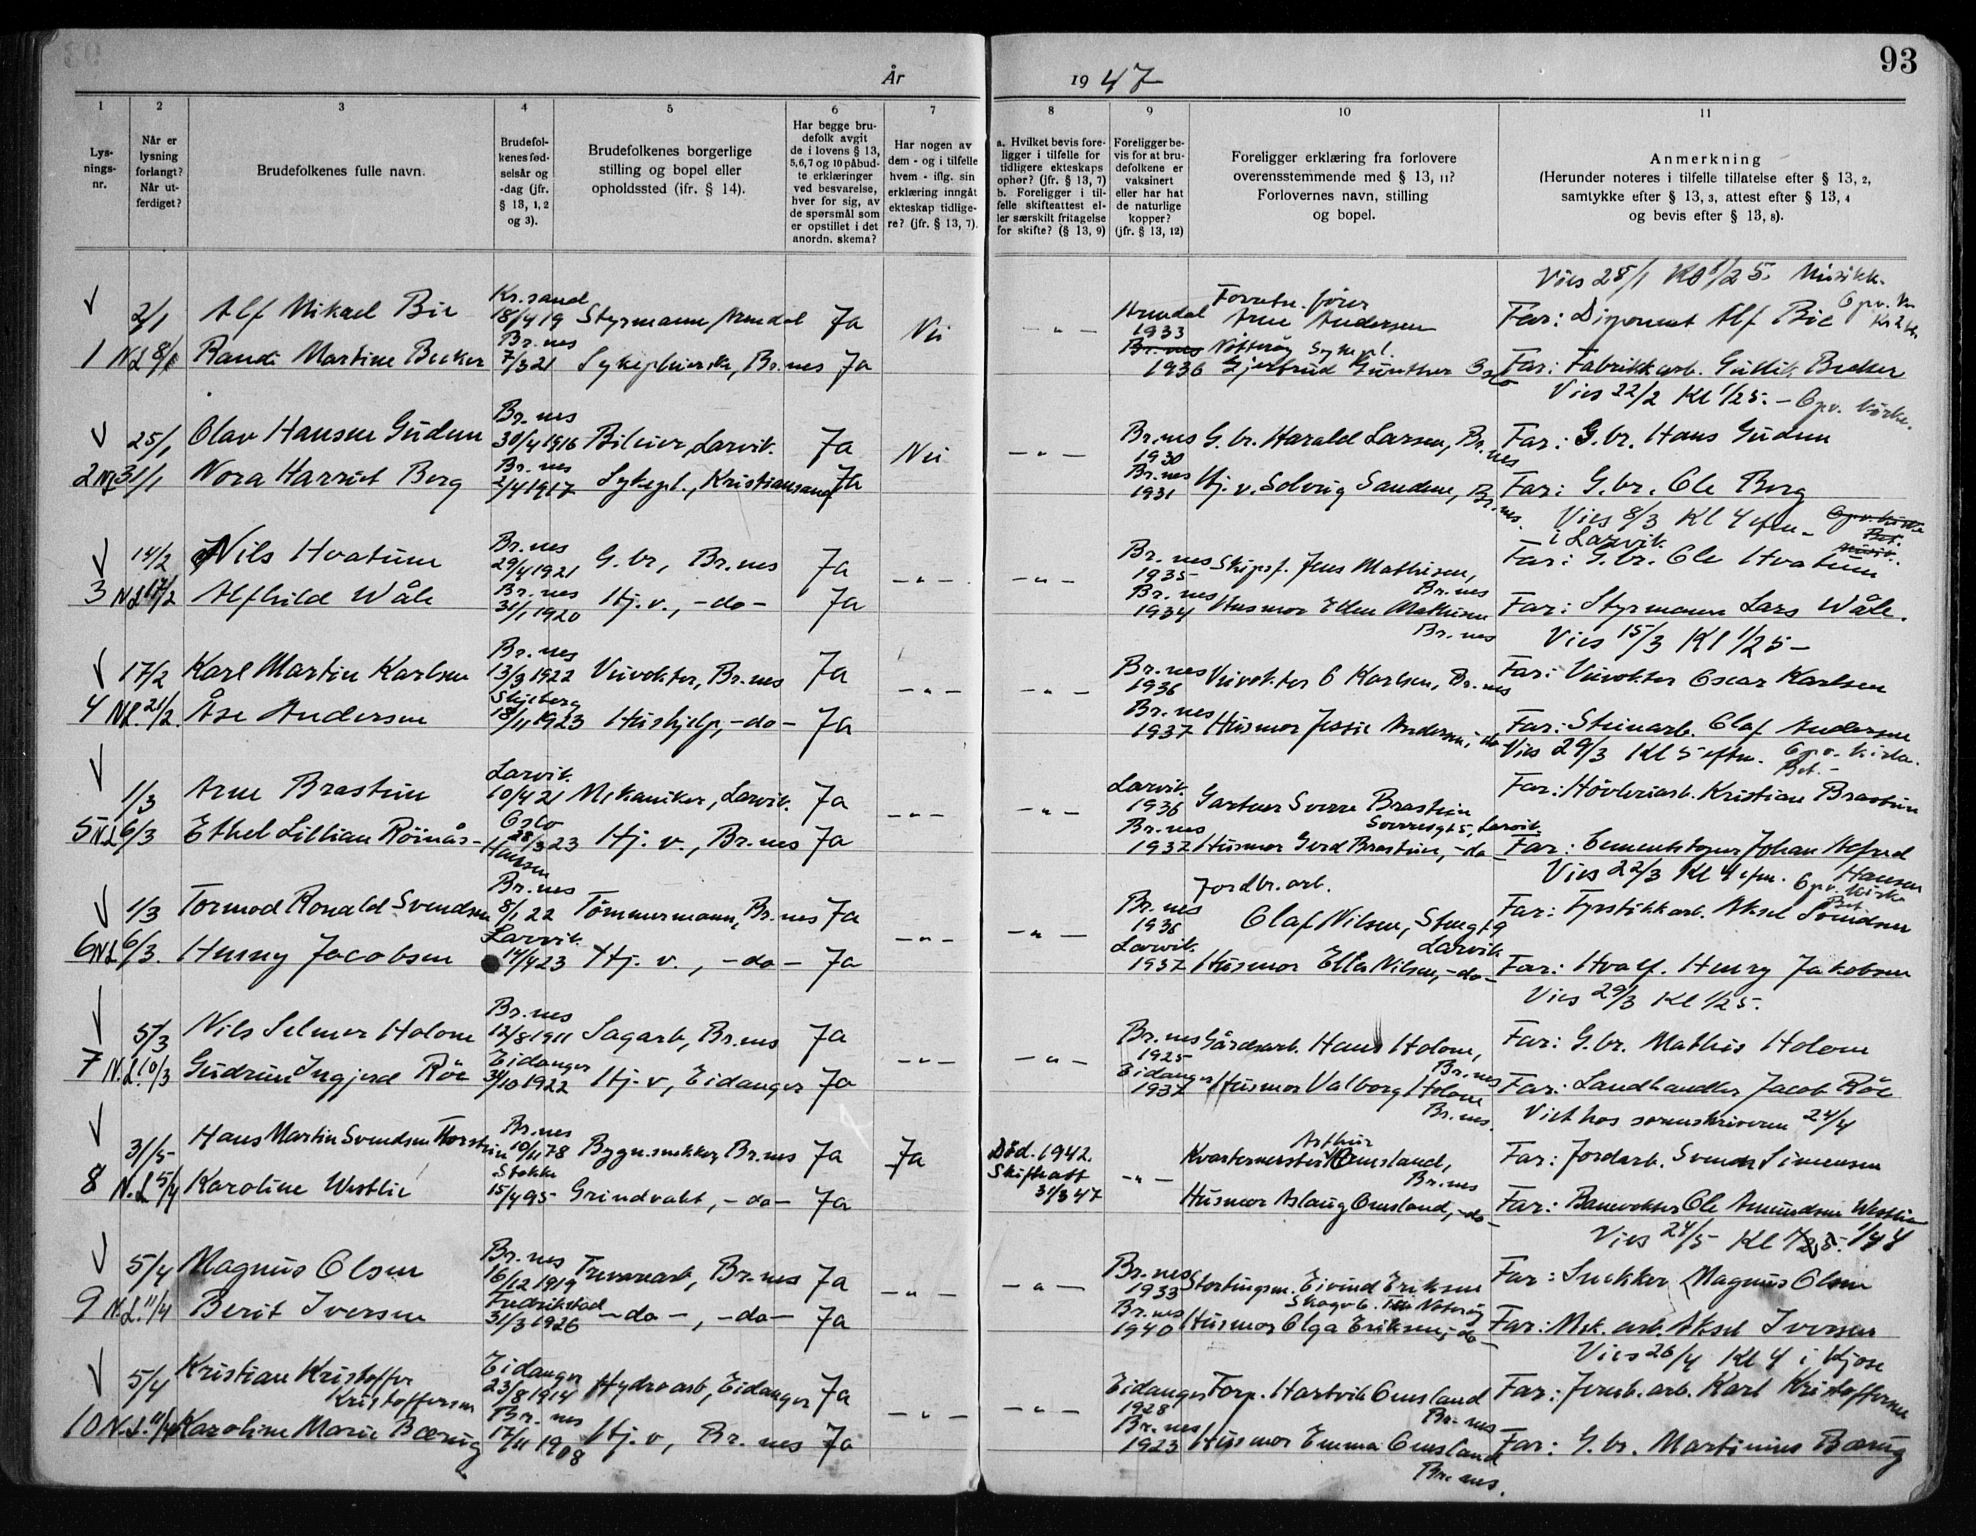 93
År
19 47
1
2
3
4
5
6
7
8
9
10
11
Lys-
nings-
nr.
Når er
lysning
forlangt?
Når ut-
ferdiget?
Brudefolkenes fulle navn.
Brudefol-
kenes fød-
selsår og
-dag (jfr.
§ 13, 1, 2
og 3).
Brudefolkenes borgerlige
stilling og bopel eller
opholdssted (jfr. § 14).
Har begge bru-
defolk avgit
de i lovens § 13,
5, 6, 7 og 10 påbud-
te erklæringer
ved besvarelse,
hver for sig, av
de spørsmål som
er opstillet i det
anordn. skema?
Har nogen av
dem - og i tilfelle
hvem - iflg. sin
erklæring inngåt
ekteskap tidlige-
re? (jfr. § 13, 7).
a. Hvilket bevis fore-
ligger i tilfelle for
tidligere ekteskaps
ophør? (jfr. § 13, 7)
b. Foreligger i til-
felle skifteattest el-
ler særskilt fritagelse
for skifte? (§ 13, 9)
Foreligger be-
vis for at bru-
defolkene er
vaksinert
eller har hat
de naturlige
kopper?
(jfr. § 13, 12)
Foreligger erklæring fra forlovere
overensstemmende med § 13, 11?
Forlovernes navn, stilling
og bopel.
Anmerkning
(Herunder noteres i tilfelle tillatelse efter § 13, 2,
samtykke efter § 13, 3, attest efter § 13, 4
og bevis efter § 13, 8).
Vies 25/1 Kl 1/2 5. Musikk.
2/1 Alf Mikael Bie Kr.sand 18/4 19 Styrmann, Arendal Ja Nei - " - Arendal 1933 Forretn. fører Arne Andersen Far: Disponent Alf Bie
1 N.L 8/1 Randi Martine Becker Br.nes 7/3 21 Sykepleierske, Br.nes Ja 1936 Nøtterøy Sykepl. Gjertrud Günther Oslo Far: Fabrikkarb. Gullik Becker
Vies 22/2 Kl 1/2 5. - Opv. kirke.
25/1 Olav Hansen Gudem Br.nes 30/4 1916 Bileier, Larvik. Ja Nei - " - Br.nes 1930 G. br. Harald Larsen, Br.nes Far: G. br. Hans Gudem
2 N.L 31/1 Nora Harriet Berg Br.nes 2/4 1917 Sykepl., Kristiansand Ja Br.nes 1931 Hj. v. Solveig Sandene, Br.nes. Far: G. br. Ole Berg
Vies 8/3 Kl 4 efm. - i Larvik.
14/2 Nils Hvatum Br.nes 29/4 1921 G. br, Br.nes Ja - " - - " - Br.nes 1935 Skipsf. Jens Mathisen, Br.nes Far: G. br. Ole Hvatum
3 N.L 17/2 Alfhild Wåle Br.nes 31/1 1920 Hj. v., -do- Ja Br.nes 1934 Husmor Ellen Mathisen Br.nes Far: Styrmann Lars Wåle.
Vies 15/3 Kl 1/2 5 -
17/2 Karl Martin Karlsen Br.nes 13/3 1922 Veivokter, Br.nes Ja - " - - " - Br.nes 1936 Veivokter O Karlsen, Br.nes Far: Veivokter Oscar Karlsen
4 N.L. 21/2. Åse Andersen Skjeberg 18/11 1923 Hushjelp, -do- Ja Br.nes 1937 Husmor Jessie Andersen, -do- Far: Steinarb. Olaf Andersen
Vies 29/3 Kl 5 eftm. Opv. kirke. Bet.
1/3 Arne Brastein Larvik. 10/4 21 Mekaniker, Larvik. Ja - " - - " - Larvik. 1936 Gartner Sverre Brastein Sverresgt 5, Larvik. Far: Høvleriarb. Kristian Brastein
5 N.L 6/3 Ethel Lillian Röinås-Hansen Oslo 28/3 23 Hj. v., Br.nes Ja Br.nes 1937 Husmor Gerd Brastein, -do- Far: Cementstøper Johan Alfred Hansen
Vies 22/3 Kl 4 efm. Opv. kirke Bet.
1/3 Tormod Ronald Svendsen Br.nes 8/1 22 Tömmermann, Br.nes Ja - " - - " - Br.nes 1936 Jordbr. arb. Olaf Nilsen, Stengt 9 Larvik Far: Fyrstikkarb. Aksel Svendsen
6 N.L 6/3. Henny Jacobsen Larvik. 14/4 23 Hj. v., -do- Ja Larvik. 1937 Husmor Ella Nilsen, -do- Far: Hvalf. Henry Jakobsen
Vies 29/3 Kl 1/2 5.
5/3 Nils Selmer Holom Br.nes 12/8 1911 Sagarb, Br.nes Ja - " - - " - Br.nes 1925 Gårdsarb. Hans Holom, Br.nes Far: G. br. Mathis Holom
7 N.L. 10/3 Gudrun Ingjerd Röe Eidanger 31/10 1922 Hj. v, Eidanger Ja Eidanger 1937 Husmor Valborg Holom Br.nes. Far: Landhandler Jacob Röe
Viet hos sorenskriveren 24/4
31/5 Hans Martin Svendsen Torstein Br.nes 10/11 78 Bygn.snekker, Br.nes Ja Ja Död. 1942. Skifteatt 31/3 47 - " - Kvartermester Arthur Omsland, Br.nes Far: Jordarb. Svend Simensen
8 N.L 5/4 Karoline Westlie Stokke 15/4 95 Grindvakt, -do- Ja Husmor Aslaug Omsland, -do- Far: Banevokter Ole Amundsen Westlie
Vies 24/5 Kl 1/4 4
5/4 Magnus Olsen Br.nes 16/12 1919 Trevarearb, Br.nes Ja - " - - " - Br.nes 1933 Stortingsm. Eivind Eriksen Far: Snekker Magnus Olsen
9 N.L. 11/4 Berit Iversen Fredrikstad 31/3 1926 -do-, -do- Ja Br.nes 1940 Husmor Olga Eriksen, -do- Far: Mek. arb. Aksel Iversen
Vies 26/4 Kl 4 i Kjose
5/4 Kristian Kristoffer Kristoffersen Eidanger 23/8 1914 Hydroarb, Eidanger Ja - " - - " - Eidanger 1928 Torp. Hartvik Omsland Br.nes Far: Jernb. arb. Karl Kristoffersen
10 N.L. 11/4 Karoline Marie Bærug Br.nes 17/11 1908 Hj. v, Br.nes Ja Br.nes 1923 Husmor Emma Omsland Br.nes. Far: G. br. Martinius Bærug